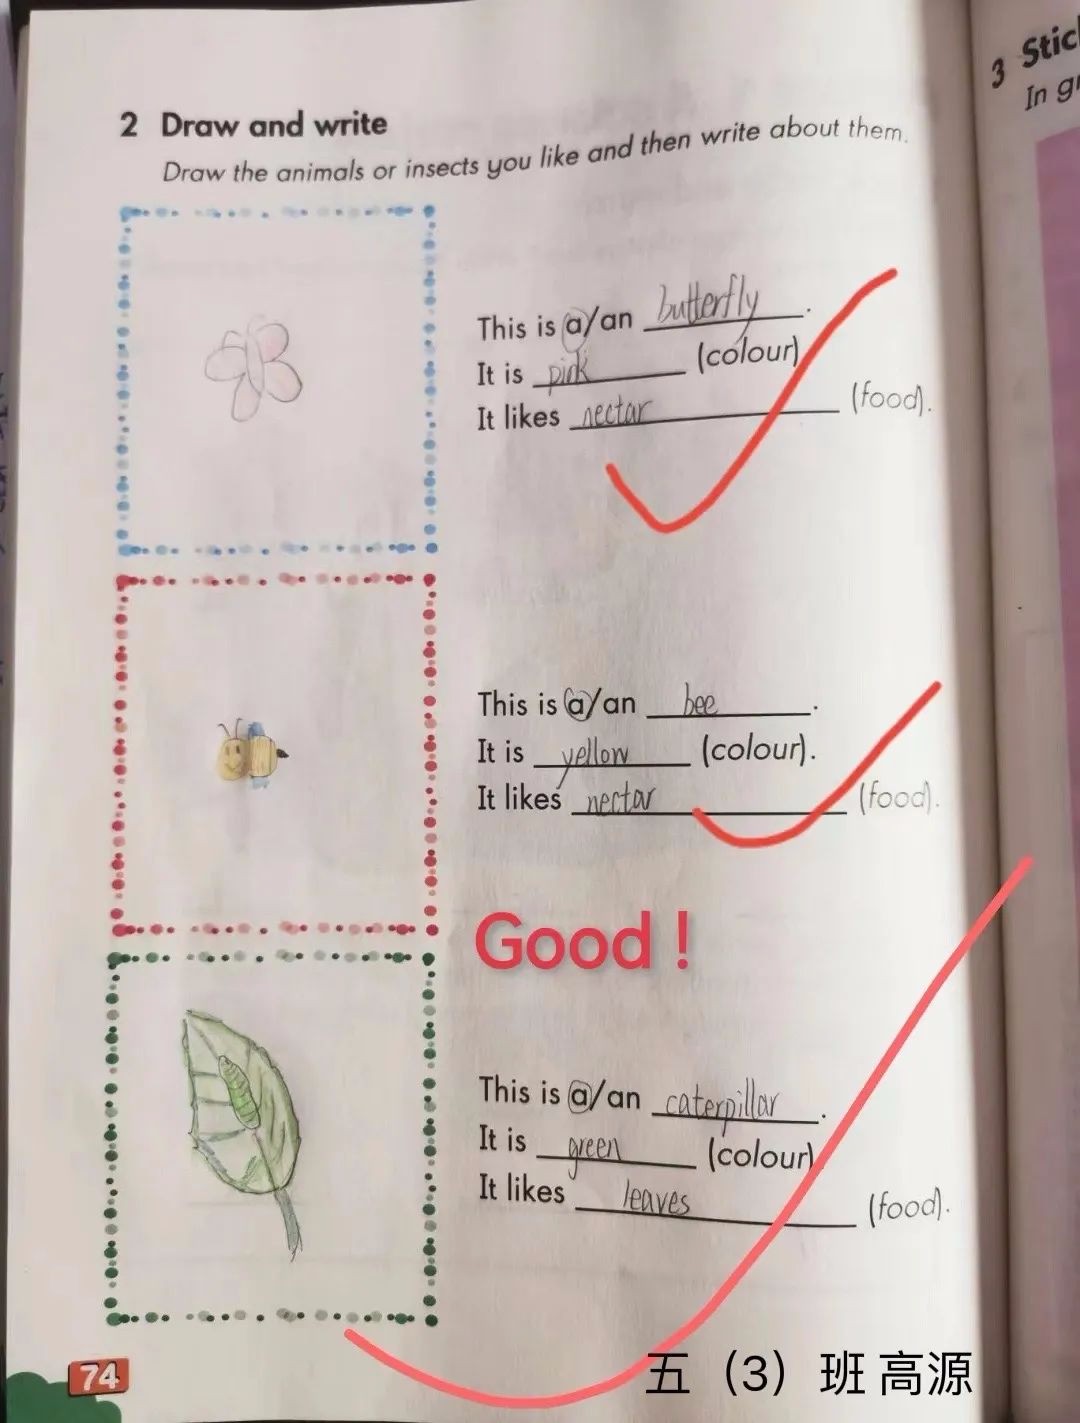 2 Draw and write
Draw the animals or insects you like and then write about them.
This is a/an butterfly.
It is pink (colour)
It likes nectar (food).
This is a/an bee.
It is yellow (colour).
It likes nectar (food).
Good!
This is a/an caterpillar.
It is green (colour)
It likes leaves (food).
74
五（3）班 高源
3 Stic
In gr